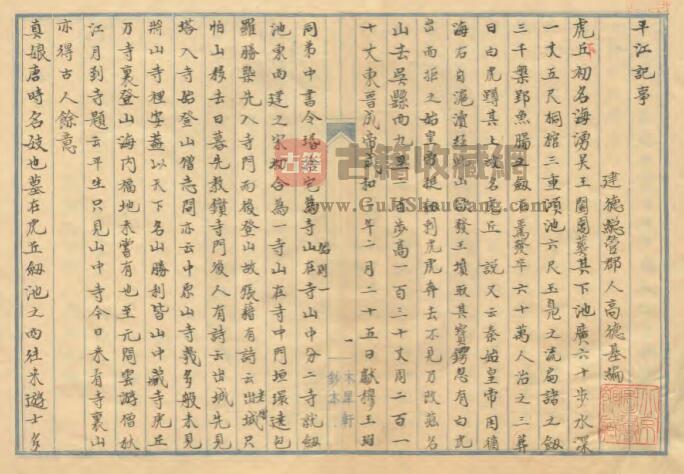 平江記事
建德總管郡人高德基編
虎丘初名海湧吴王闔閭葬其下池廣六十步水深
一丈五尺桐棺三重澒池六尺玉鳧之流扁諸之劔
三千槃郢魚腸之劔在焉發卒六十萬人治之三葬
日白虎蹲其上故名虎丘 說又云秦始皇帝因循
海右自滬瀆經此山欲發王墳取其寶鍔忽有白虎
出而拒之始皇帝挺劔刺虎虎奔去不見乃改茲名
山去吳縣西九里二百步高一百三十丈周二百一
十丈東晉成帝咸和 年月二十五日獻穆王珣
一
木犀軒
鈔本
同弟中書令珉捨宅為寺山在寺山中分二寺就劔
池東西建之宋初合為一寺山在寺中門垣環遶包
羅勝槩先入寺門而後登山故張籍有詩云老僧只
怕山移去日暮先教鎖寺門後人有詩云出城先見
塔入寺始登山僧志閑亦云中原山寺幾多般未見
將山寺裡安蓋以天下名山勝刹皆山中藏寺虎丘
乃寺裏登山海内福地未嘗有也至元間雲游僧
江月到寺題云平生只見山中寺今日来看寺裏山
亦得古人餘意
真娘唐時名妓也墓在虎丘劔池之西往来遊士多
古籍收藏網
www.GuJiShouCang.com